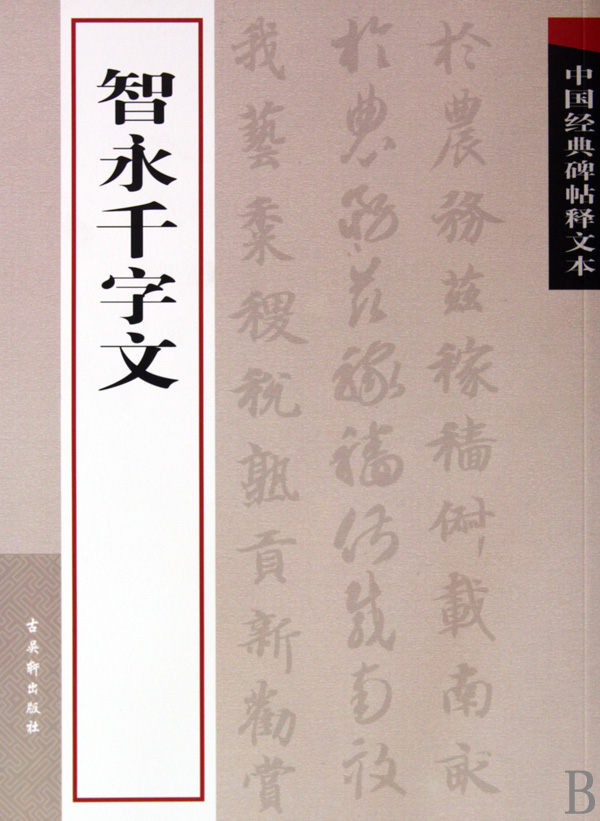 中国经典碑帖释文本
於農務茲稼穡俶載南畝
於農務茲稼穡俶載南畝
我藝黍稷稅熟貢新勸賞
智永千字文
古吴轩出版社
B